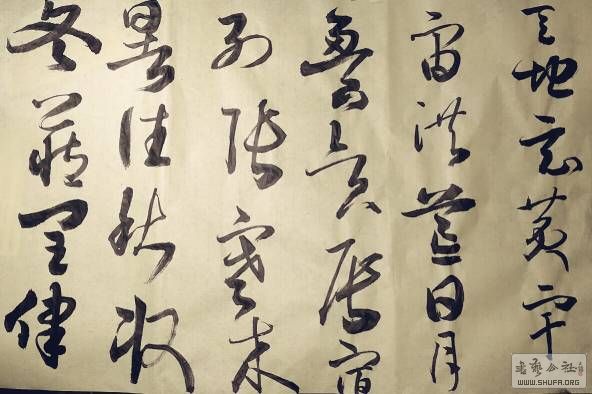 天地玄黃宇
宙洪荒日月
盈昃辰宿
列張寒來
暑往秋收
冬藏閏餘
書藝公社
WWW.SHUFA.ORG